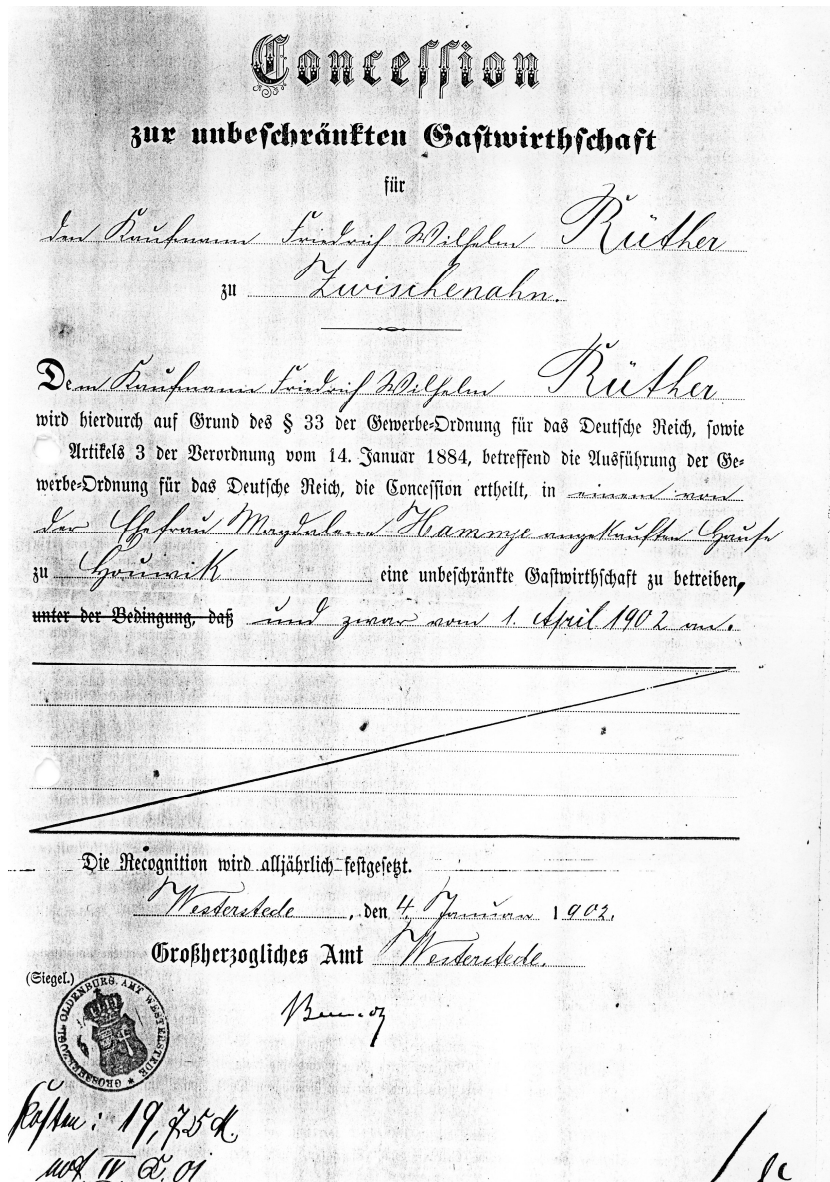 Conceſſion
zur unbeſchränkten Gaſtwirthſchaft
für
den Kaufmann Friedrich Wilhelm Rüther
zu Zwischenahn.
Dem Kaufmann Friedrich Wilhelm Rüther
wird hierdurch auf Grund des § 33 der Gewerbe-Ordnung für das Deutſche Reich, ſowie
Artikels 3 der Verordnung vom 14. Januar 1884, betreffend die Ausführung der Ge-
werbe-Ordnung für das Deutſche Reich, die Conceſſion ertheilt, in einem von
der Ehefrau Magdalene Hammje angekauften Hause
zu eine unbeſchränkte Gaſtwirthſchaft zu betreiben,
unter der Bedingung, daß und zwar vom 1. April 1902 an.
Die Recognition wird alljährlich feſtgeſetzt.
Westerstede, den 4. Januar 1902.
Großherzogliches Amt Westerstede.
(Siegel.)
GROSSHERZOGL. OLDENBURG. AMT WESTERSTEDE
Kosten: 19,75 M.